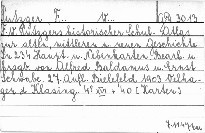 Putzger F. W. HD 3013
F. W. Putzgers historischer Schul-Atlas
zur alten, mittleren u. neuen Geschichte
In 234 Haupt- u. Nebenkarten. Bearb. u.
hrsgb. von Alfred Baldamus u. Ernst
Schwabe. 27. Aufl. Bielefeld 1903. Velha-
gen & Klasing. 4° XII + 40 (Karten)